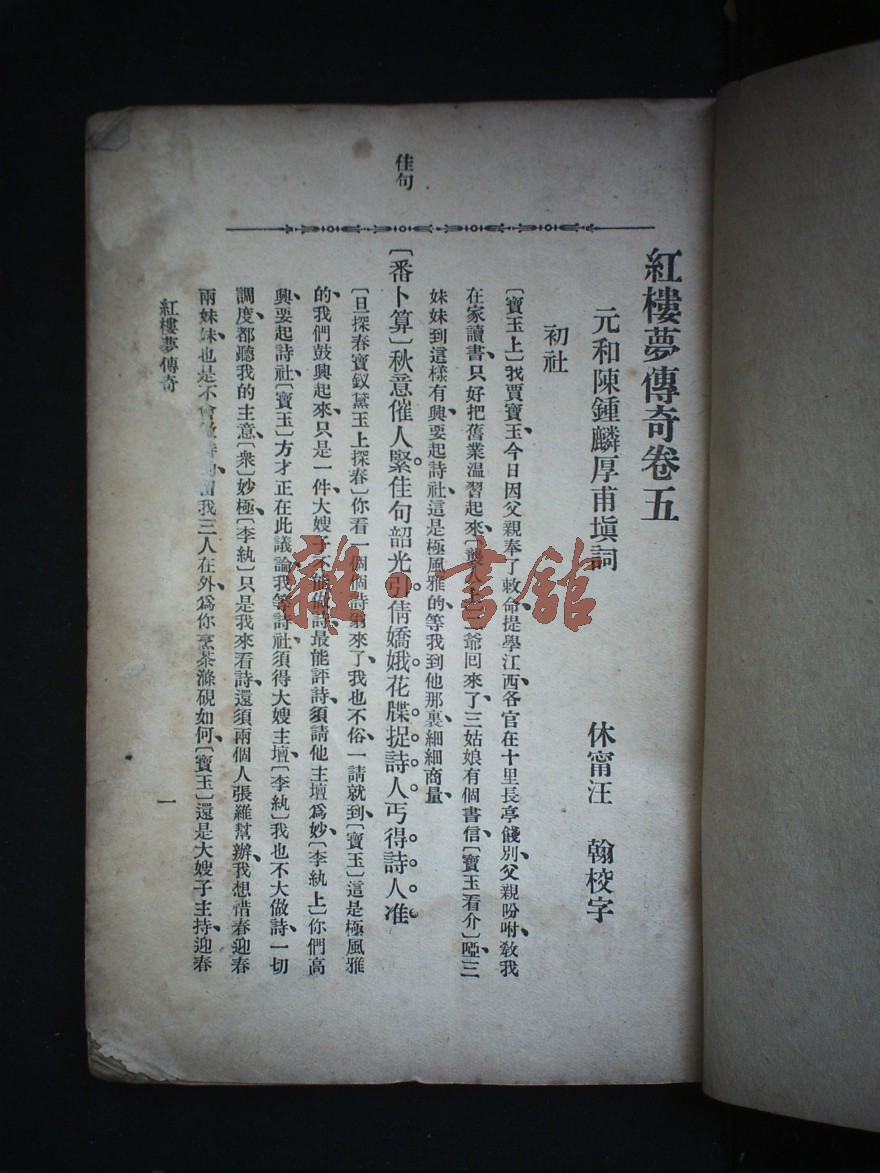 紅樓夢傳奇卷五
元和陳鍾麟厚甫塡詞　休甯汪　翰校字
初社
〔寶玉上〕我賈寶玉、今日因父親奉了敕命、提學江西、各官在十里長亭餞別、父親吩咐、敎我
在家讀書、只好把舊業溫習起來、〔襲人上〕二爺回來了、三姑娘有個書信、〔寶玉看介〕啞、三
妹妹到這樣有興、要起詩社、這是極風雅的、等我到他那裏、細細商量、
〔番卜算〕秋意催人緊。佳句韶光引。倩嬌娥花牒捉詩人。丐得詩人准。
〔旦探春寶釵黛玉上探春〕你看一個個詩翁來了、我也不俗、一請就到、〔寶玉〕這是極風雅
的、我們鼓興起來、只是一件、大嫂子不能做詩、最能評詩、須請他主壇爲妙、〔李紈上〕你們高
興要起詩社、〔寶玉〕方才正在此議論、我等詩社、須得大嫂主壇、〔李紈〕我也不大做詩、一切
調度、都聽我的主意、〔衆〕妙極、〔李紈〕只是我來看詩、還須兩個人張羅幫辦、我想惜春迎春
兩妹妹、也是不會 我三人在外、爲你烹茶滌硯如何、〔寶玉〕還是大嫂子主持、迎春
佳句
紅樓夢傳奇
一
雜·書館